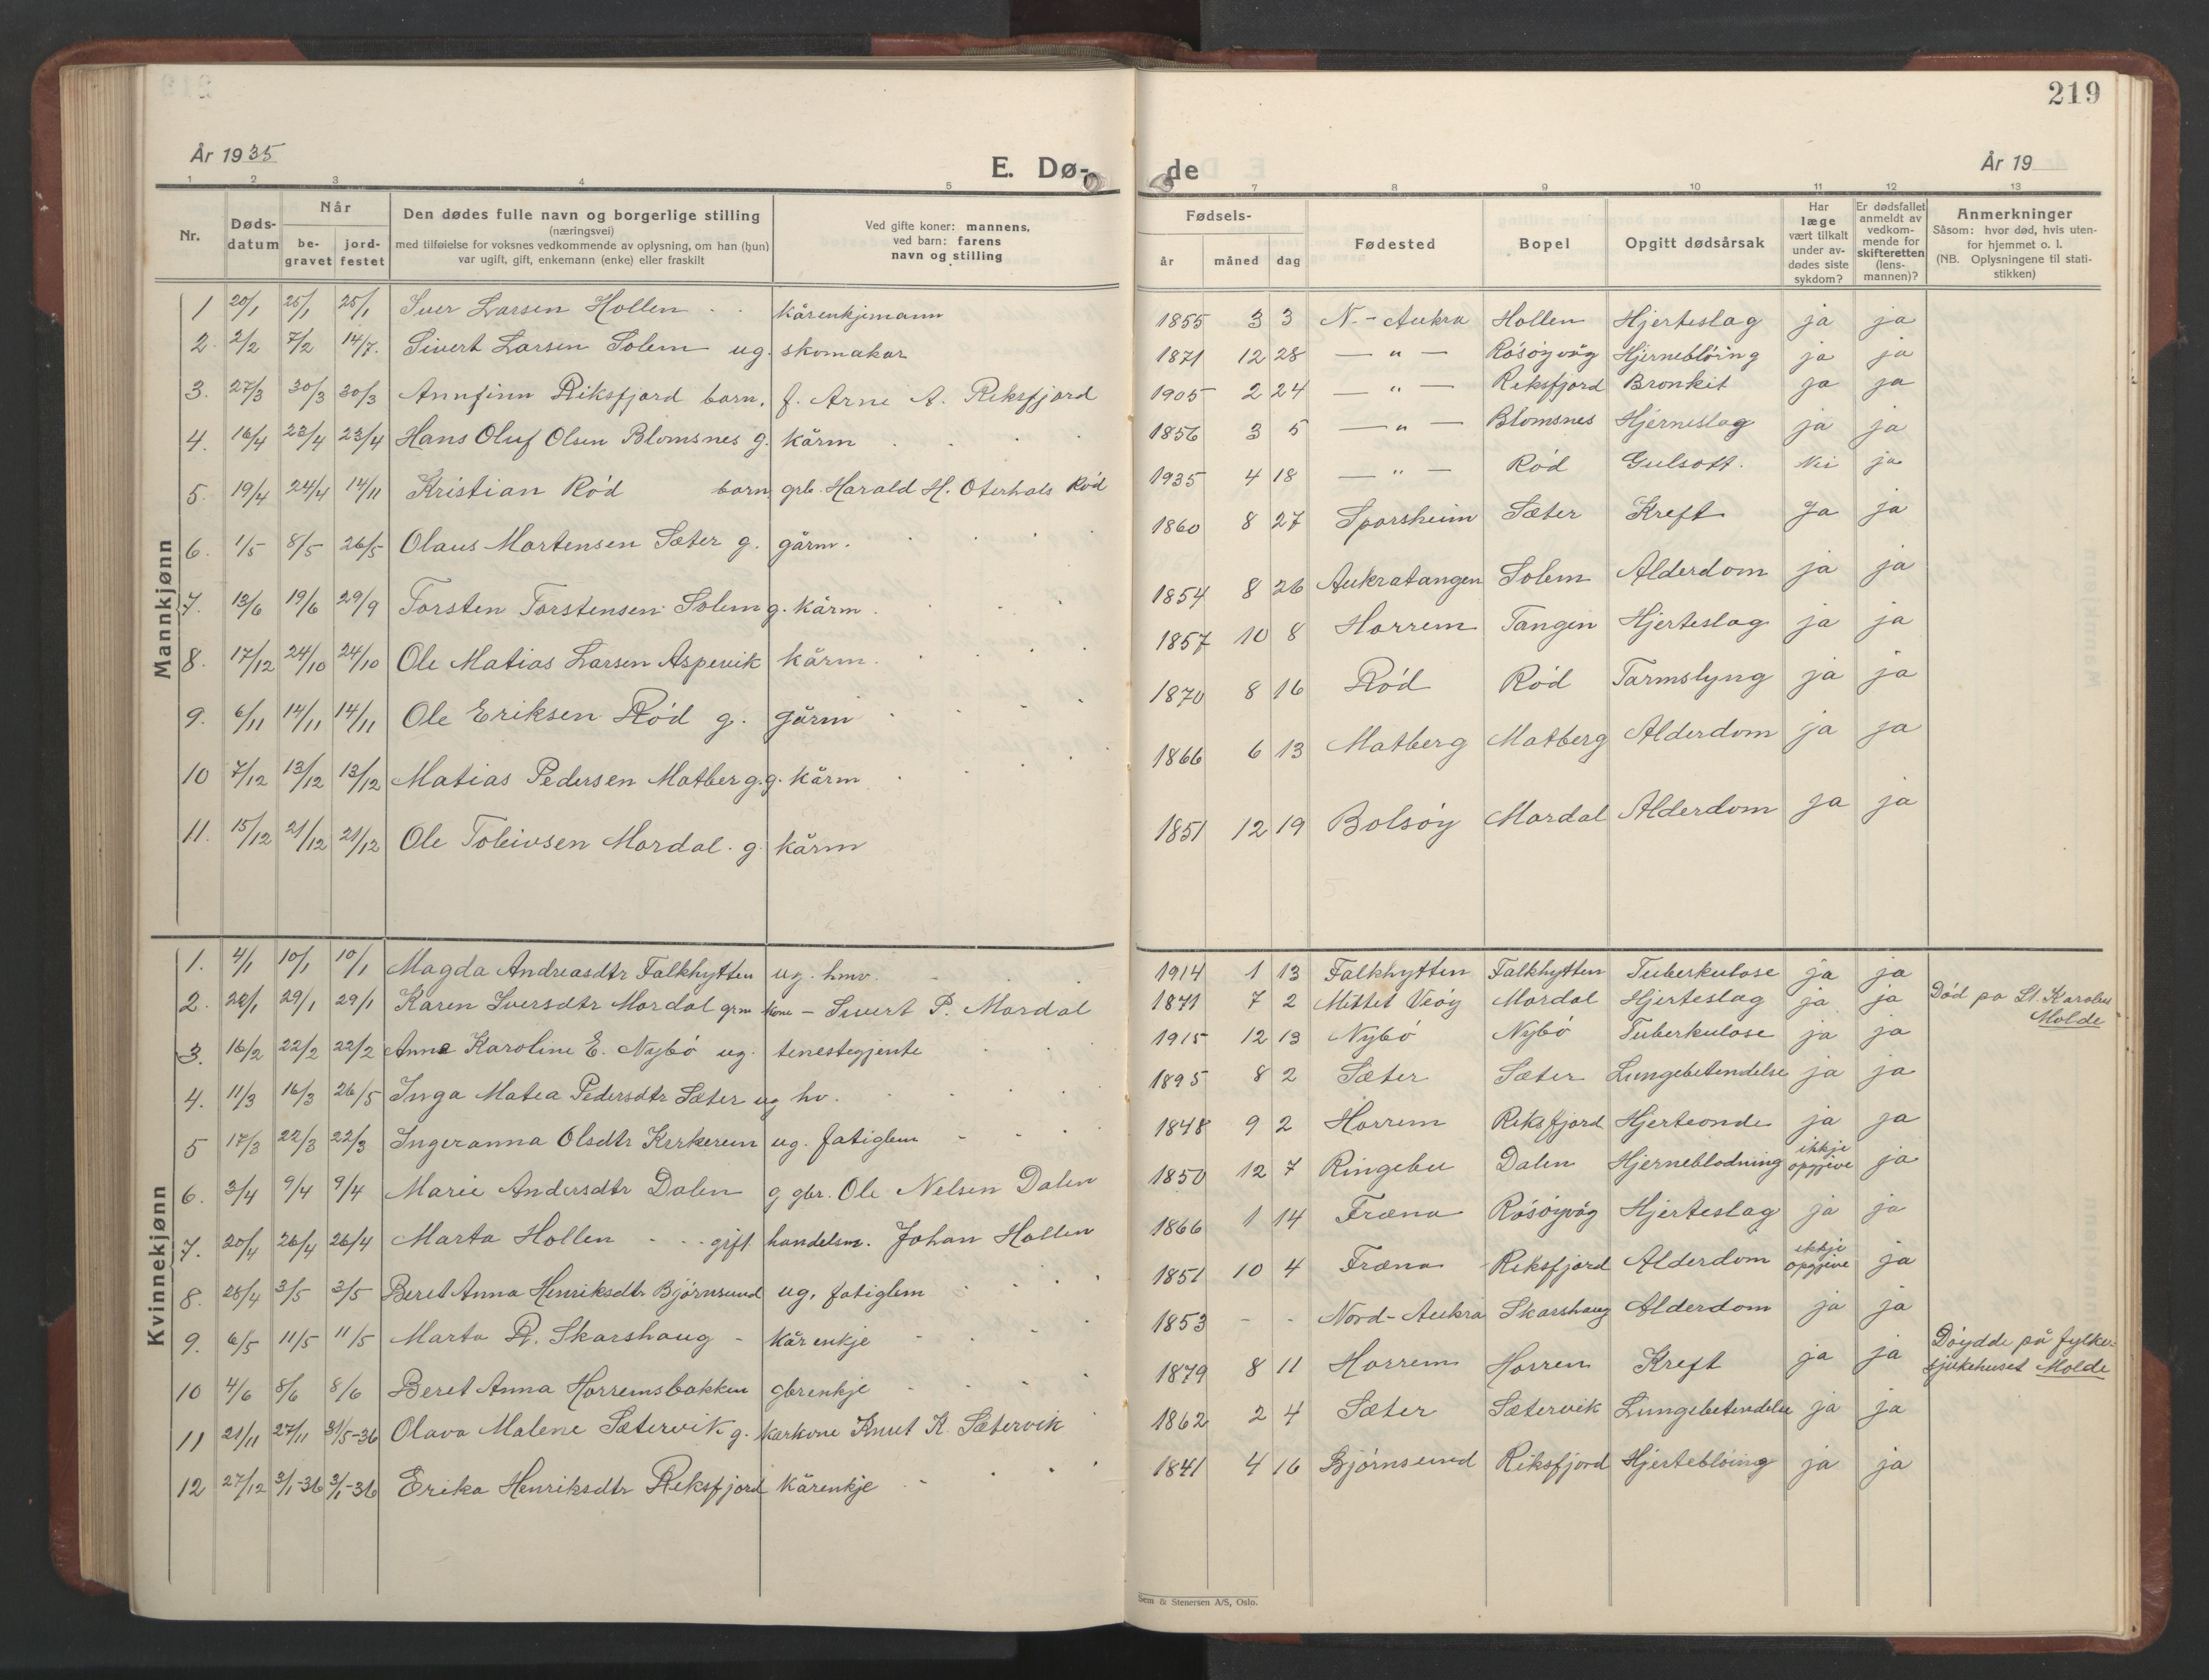 219
År 1935
E. Dø-
de
År 19
1 2 3 4 5
7 8 9 10 11 12 13
Nr.
Døds-
datum
Når
be-
gravet
jord-
festet
Den dødes fulle navn og borgerlige stilling
(næringsvei)
med tilføielse for voksnes vedkommende av oplysning, om han (hun)
var ugift, gift, enkemann (enke) eller fraskilt
Ved gifte koner: mannens,
ved barn: farens
navn og stilling
Fødsels-
år måned dag
Fødested
Bopel
Opgitt dødsårsak
Har
læge
vært tilkalt
under av-
dødes siste
sykdom?
Er dødsfallet
anmeldt av
vedkom-
mende for
skifteretten
(lens-
mannen)?
Anmerkninger
Såsom: hvor død, hvis uten-
for hjemmet o. l.
(NB. Oplysningene til stati-
stikken)
Mannkjønn
1 20/1 25/1 25/1 Iver Larsen Hollen kårenkjemann 1855 3 3 N.-Aukra Hollen Hjerteslag ja ja
2. 2/2 7/2 14/7. Sivert Larsen Solem ug. skomakar 1871 12 28 — " — Røsøyvåg Hjernebløing ja ja
3. 27/3 30/3 30/3 Annfinn Riksfjord barn. f. Arne A. Riksfjord 1905 2 24 — " — Riksfjord Bronkit ja ja
4. 16/4 23/4 23/4 Hans Oluf Olsen Blomsnes g. kårm 1856 3 5 — " — Blomsnes Hjerneslag ja ja
5. 19/4 24/4 14/11 Kristian Rød barn grb. Harald H. Oterhals Rød 1935 4 18 — " — Rød Gulsott. Nei ja
6. 1/5 8/5 26/5 Olaus Mortensen Sæter g. gårm. 1860 8 27 Sporsheim Sæter Kreft Ja ja
7. 13/6 19/6 29/9 Torsten Torstensen Solem g. kårm. 1854 8 26 Aukratangen Solem Alderdom ja ja
8. 17/12 24/10 24/10 Ole Matias Larsen Aspevik kårm. 1857 10 8 Horrem Tangen Hjerteslag ja ja
9. 6/11 14/11 14/11 Ole Eriksen Rød g. gårm 1870 8 16 Rød Rød Tarmslyng ja ja
10 7/12 13/12 13/12 Matias Pedersen Matberg. g. kårm 1866 6 13 Matberg Matberg Alderdom ja ja
11. 15/12 21/12 21/12 Ole Toleivsen Mordal. g. kårm 1851 12 19 Bolsøy Mordal Alderdom ja ja
Kvinnekjønn
1. 4/1 10/1 10/1 Magda Andreasdtr Falkhytten ug. hmv. 1914 1 13 Falkhytten Falkhytten Tuberkulose ja ja
2. 22/1 29/1 29/1 Karen Iversdtr Mordal grm kone - Sivert P. Mordal 1871 7 2 Mittet Veøy Mordal Hjerteslag ja ja Død pa St. Karolus
Molde
3. 16/2 22/2 22/2 Anna Karoline E. Nybø ug. tenestegjente 1915 12 13 Nybø Nybø Tuberkulose ja ja
4. 11/3 16/3 26/5 Inga Matea Pedersdtr Sæter ug hv. 1895 8 2 Sæter Sæter Lungebetendelse ja ja
5 17/3 22/3 22/3 Ingeranna Olsdtr Kerkerem ug. fatiglem 1848 9 2 Horrem Riksfjord Hjerteonde ja ja
6. 3/4 9/4 9/4 Marie Andersdtr Dalen g gbr. Ole Nelsen Dalen 1850 12 7 Ringebu Dalen Hjerneblodning ikkje
opgjive ja
7. 20/4 26/4 26/4 Marta Hollen gift handelsm. Johan Hollen 1866 1 14 Fræna Røsøyvåg Hjerteslag ja ja
8. 28/4 3/5 3/5 Beret Anna Henriksdtr Bjørnsund ug, fatiglem 1851 10 4 Fræna Riksfjord Alderdom ikkje
opgjive ja
9. 6/5 11/5 11/5 Marta R. Skarshaug - kårenkje 1853 - - Nord-Aukra Skarshaug Alderdom ja ja
10 4/6 8/6 8/6 Beret Anna Horremsbakken gbrenkje 1879 8 11 Horrem Horrem Kreft ja ja Døydde på fylke-
sjukehuset Molde
11 21/11 27/11 31/5-36 Olava Malene Sætervik g. karkone Knut K. Sætervik 1862 2 4 Sæter Sætervik Lungebetendelse ja ja
12 27/12 3/1-36 3/1-36 Erika Henriksdtr Riksfjord kårenkje 1841 4 16 Bjørnsund Riksfjord Hjertebløing ja ja
Sem & Stenersen A/S, Oslo.